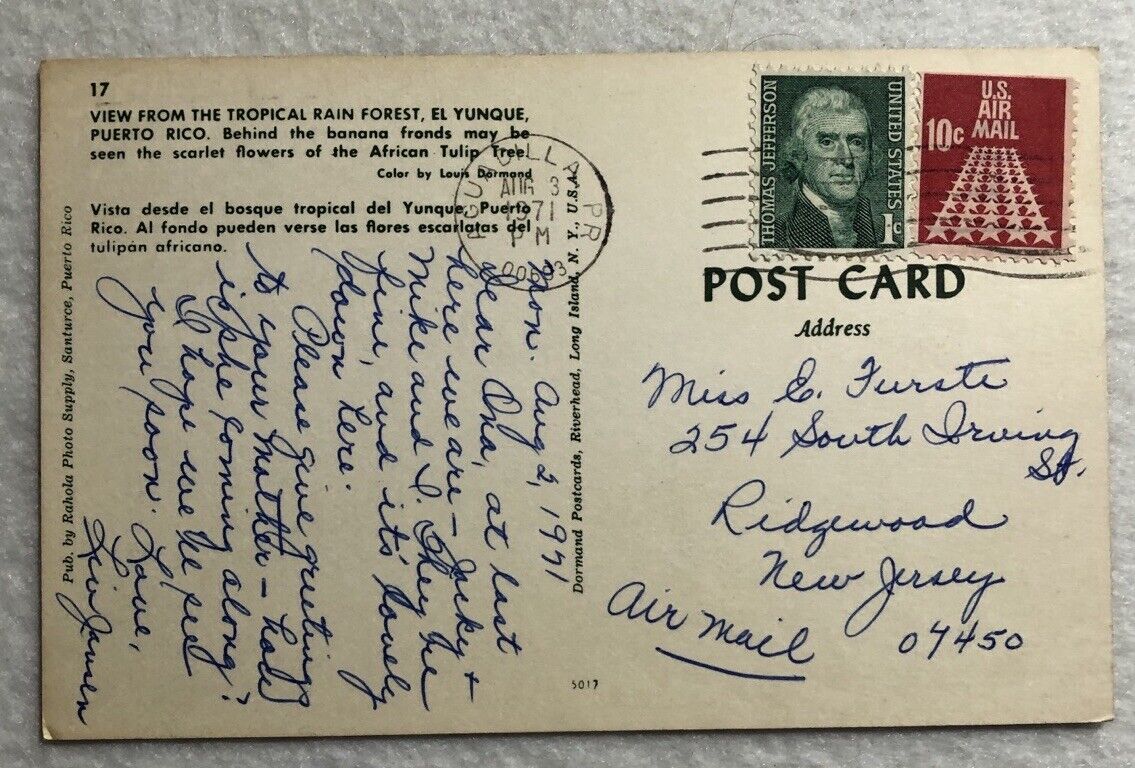 17
VIEW FROM THE TROPICAL RAIN FOREST, EL YUNQUE,
PUERTO RICO. Behind the banana fronds may be
seen the scarlet flowers of the African Tulip Tree.
Color by Louis Dormand
Vista desde el bosque tropical del Yunque, Puerto
Rico. Al fondo pueden verse las flores escarlatas del
tulipán africano.
Pub. by Rahola Photo Supply, Santurce, Puerto Rico
Mon. Aug 2, 1971
Dear Ona, at last
here we are - Jacky +
Mike and I. They're
fine, and its' lovely
down here.
Please give greetings
to your mother - how
is she coming along?
I hope we'll see
you soon. Love,
Dormand Postcards, Riverhead, Long Island, N. Y., U.S.A.
AGUADILLA PR
AUG 3
1971
PM
THOMAS JEFFERSON
UNITED STATES
1c
U.S.
AIR
MAIL
10c
POST CARD
Address
Miss E. Furste
254 South Irving
St.
Ridgewood
New Jersey
07450
Air Mail
5017